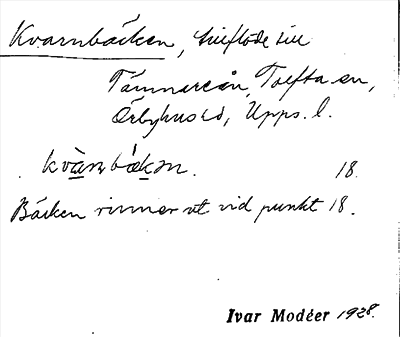 Kvarnbäcken, tillflöde till
Tämnarån, Tolfta sn,
Örbyhus hd, Upps. l.
kvà̱n, bǽkm. 18.
Bäcken rinner ut vid punkt 18.
Ivar Modéer 1928.